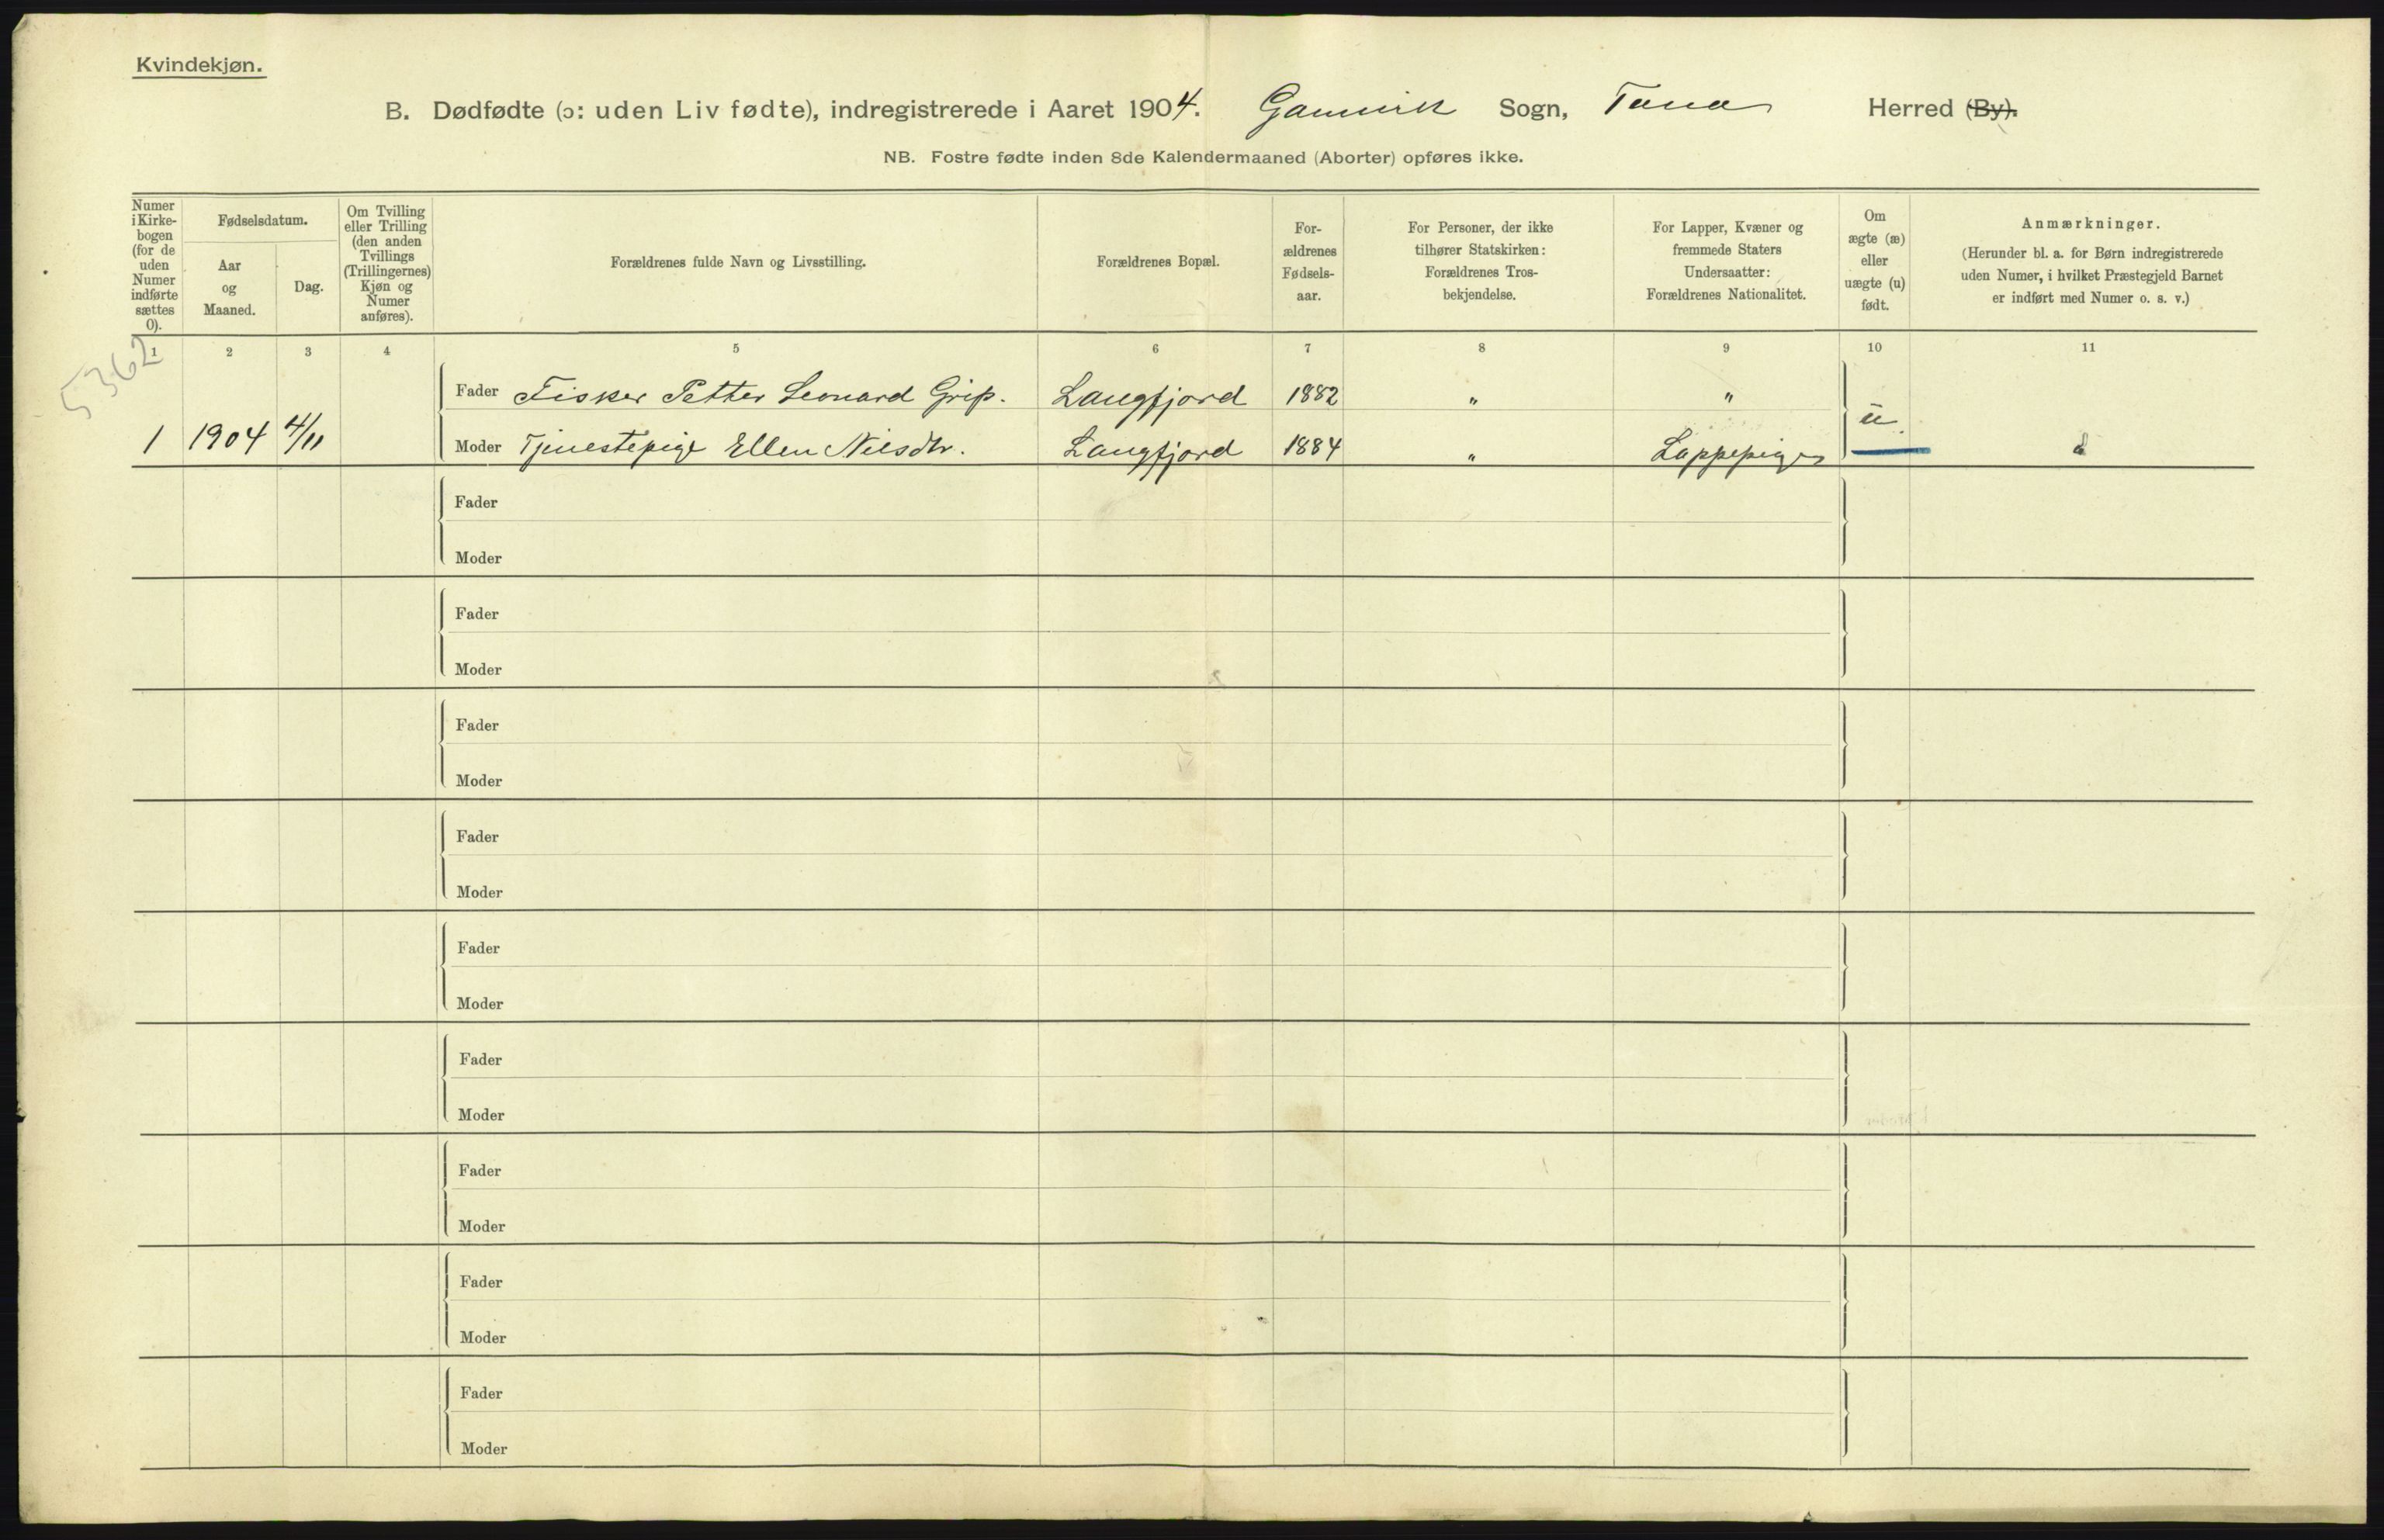 Kvindekjøn.
B. Dødfødte (ɔ: uden Liv fødte), indregistrerede i Aaret 1904. Gamvik Sogn, Tana Herred (By).
NB. Fostre fødte inden 8de Kalendermaaned (Aborter) opføres ikke.
Numer i Kirke-bogen (for de uden Numer indførte sættes 0).
Fødselsdatum.
Aar og Maaned.
Dag.
Om Tvilling eller Trilling (den anden Tvillings (Trillingernes) Kjøn og Numer anføres).
Forældrenes fulde Navn og Livsstilling.
Forældrenes Bopæl.
For-ældrenes Fødsels-aar.
For Personer, der ikke tilhører Statskirken: Forældrenes Tros-bekjendelse.
For Lapper, Kvæner og fremmede Staters Undersaatter: Forældrenes Nationalitet.
Om ægte (æ) eller uægte (u) født.
Anmærkninger.
(Herunder bl. a. for Børn indregistrerede uden Numer, i hvilket Præstegjeld Barnet er indført med Numer o. s. v.)
1 2 3 4 5 6 7 8 9 10 11
5362
Fader Fisker Petter Leonard Grip. Langfjord 1882 " "
1 1904 4/11 Moder Tjenestepige Ellen Nilsdtr. Langfjord 1884 " Lappepige u.
Fader
Moder
Fader
Moder
Fader
Moder
Fader
Moder
Fader
Moder
Fader
Moder
Fader
Moder
Fader
Moder
Fader
Moder